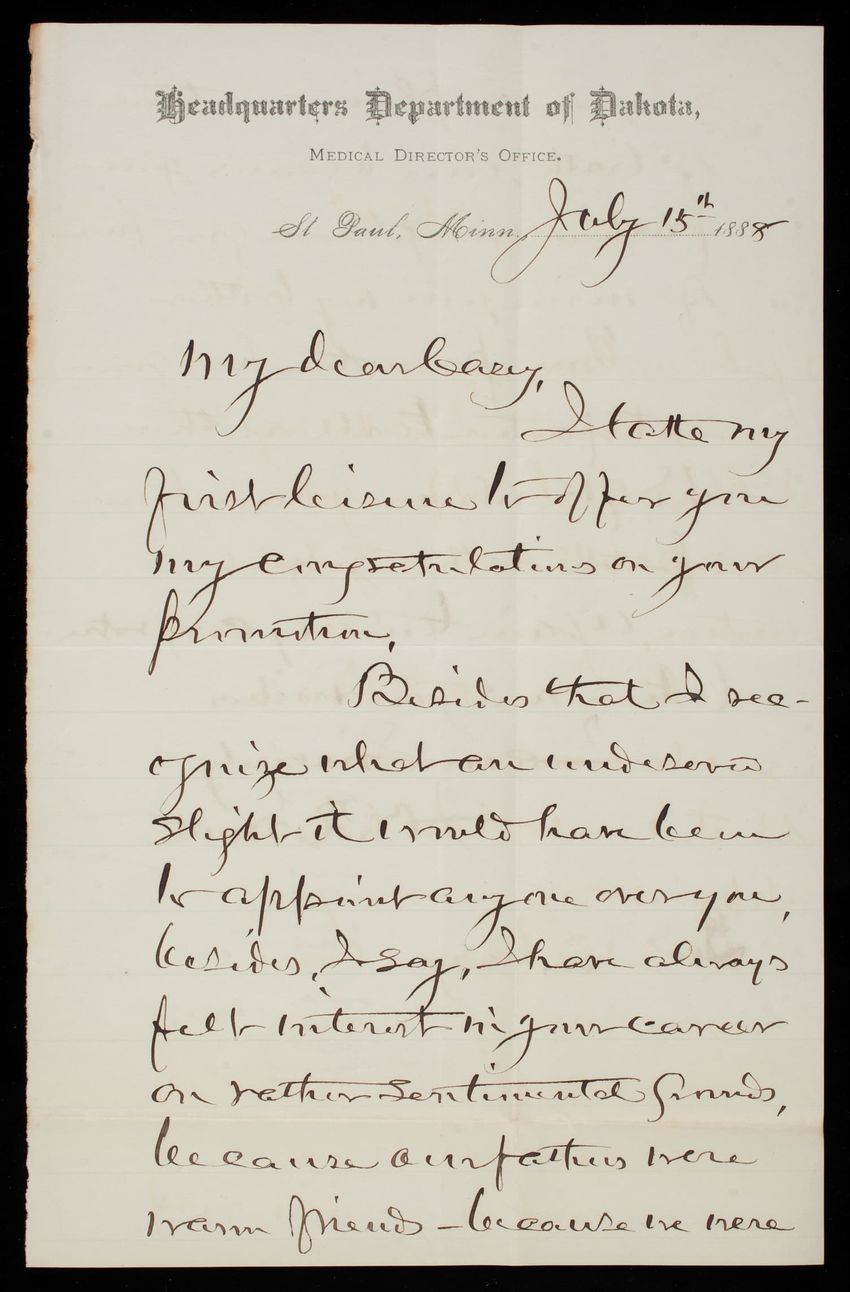 Headquarters Department of Dakota,
Medical Director's Office.
St Paul, Minn. July 15th 1888
My dear Casey,
I take my
first leisure to offer you
my congratulations on your
promotion,
Besides that I rec-
ognize what an undeserved
slight it would have been
to appoint anyone over you,
besides, I say, I have always
felt interest in your career
on rather sentimental grounds,
because our fathers were
warm friends - because we were